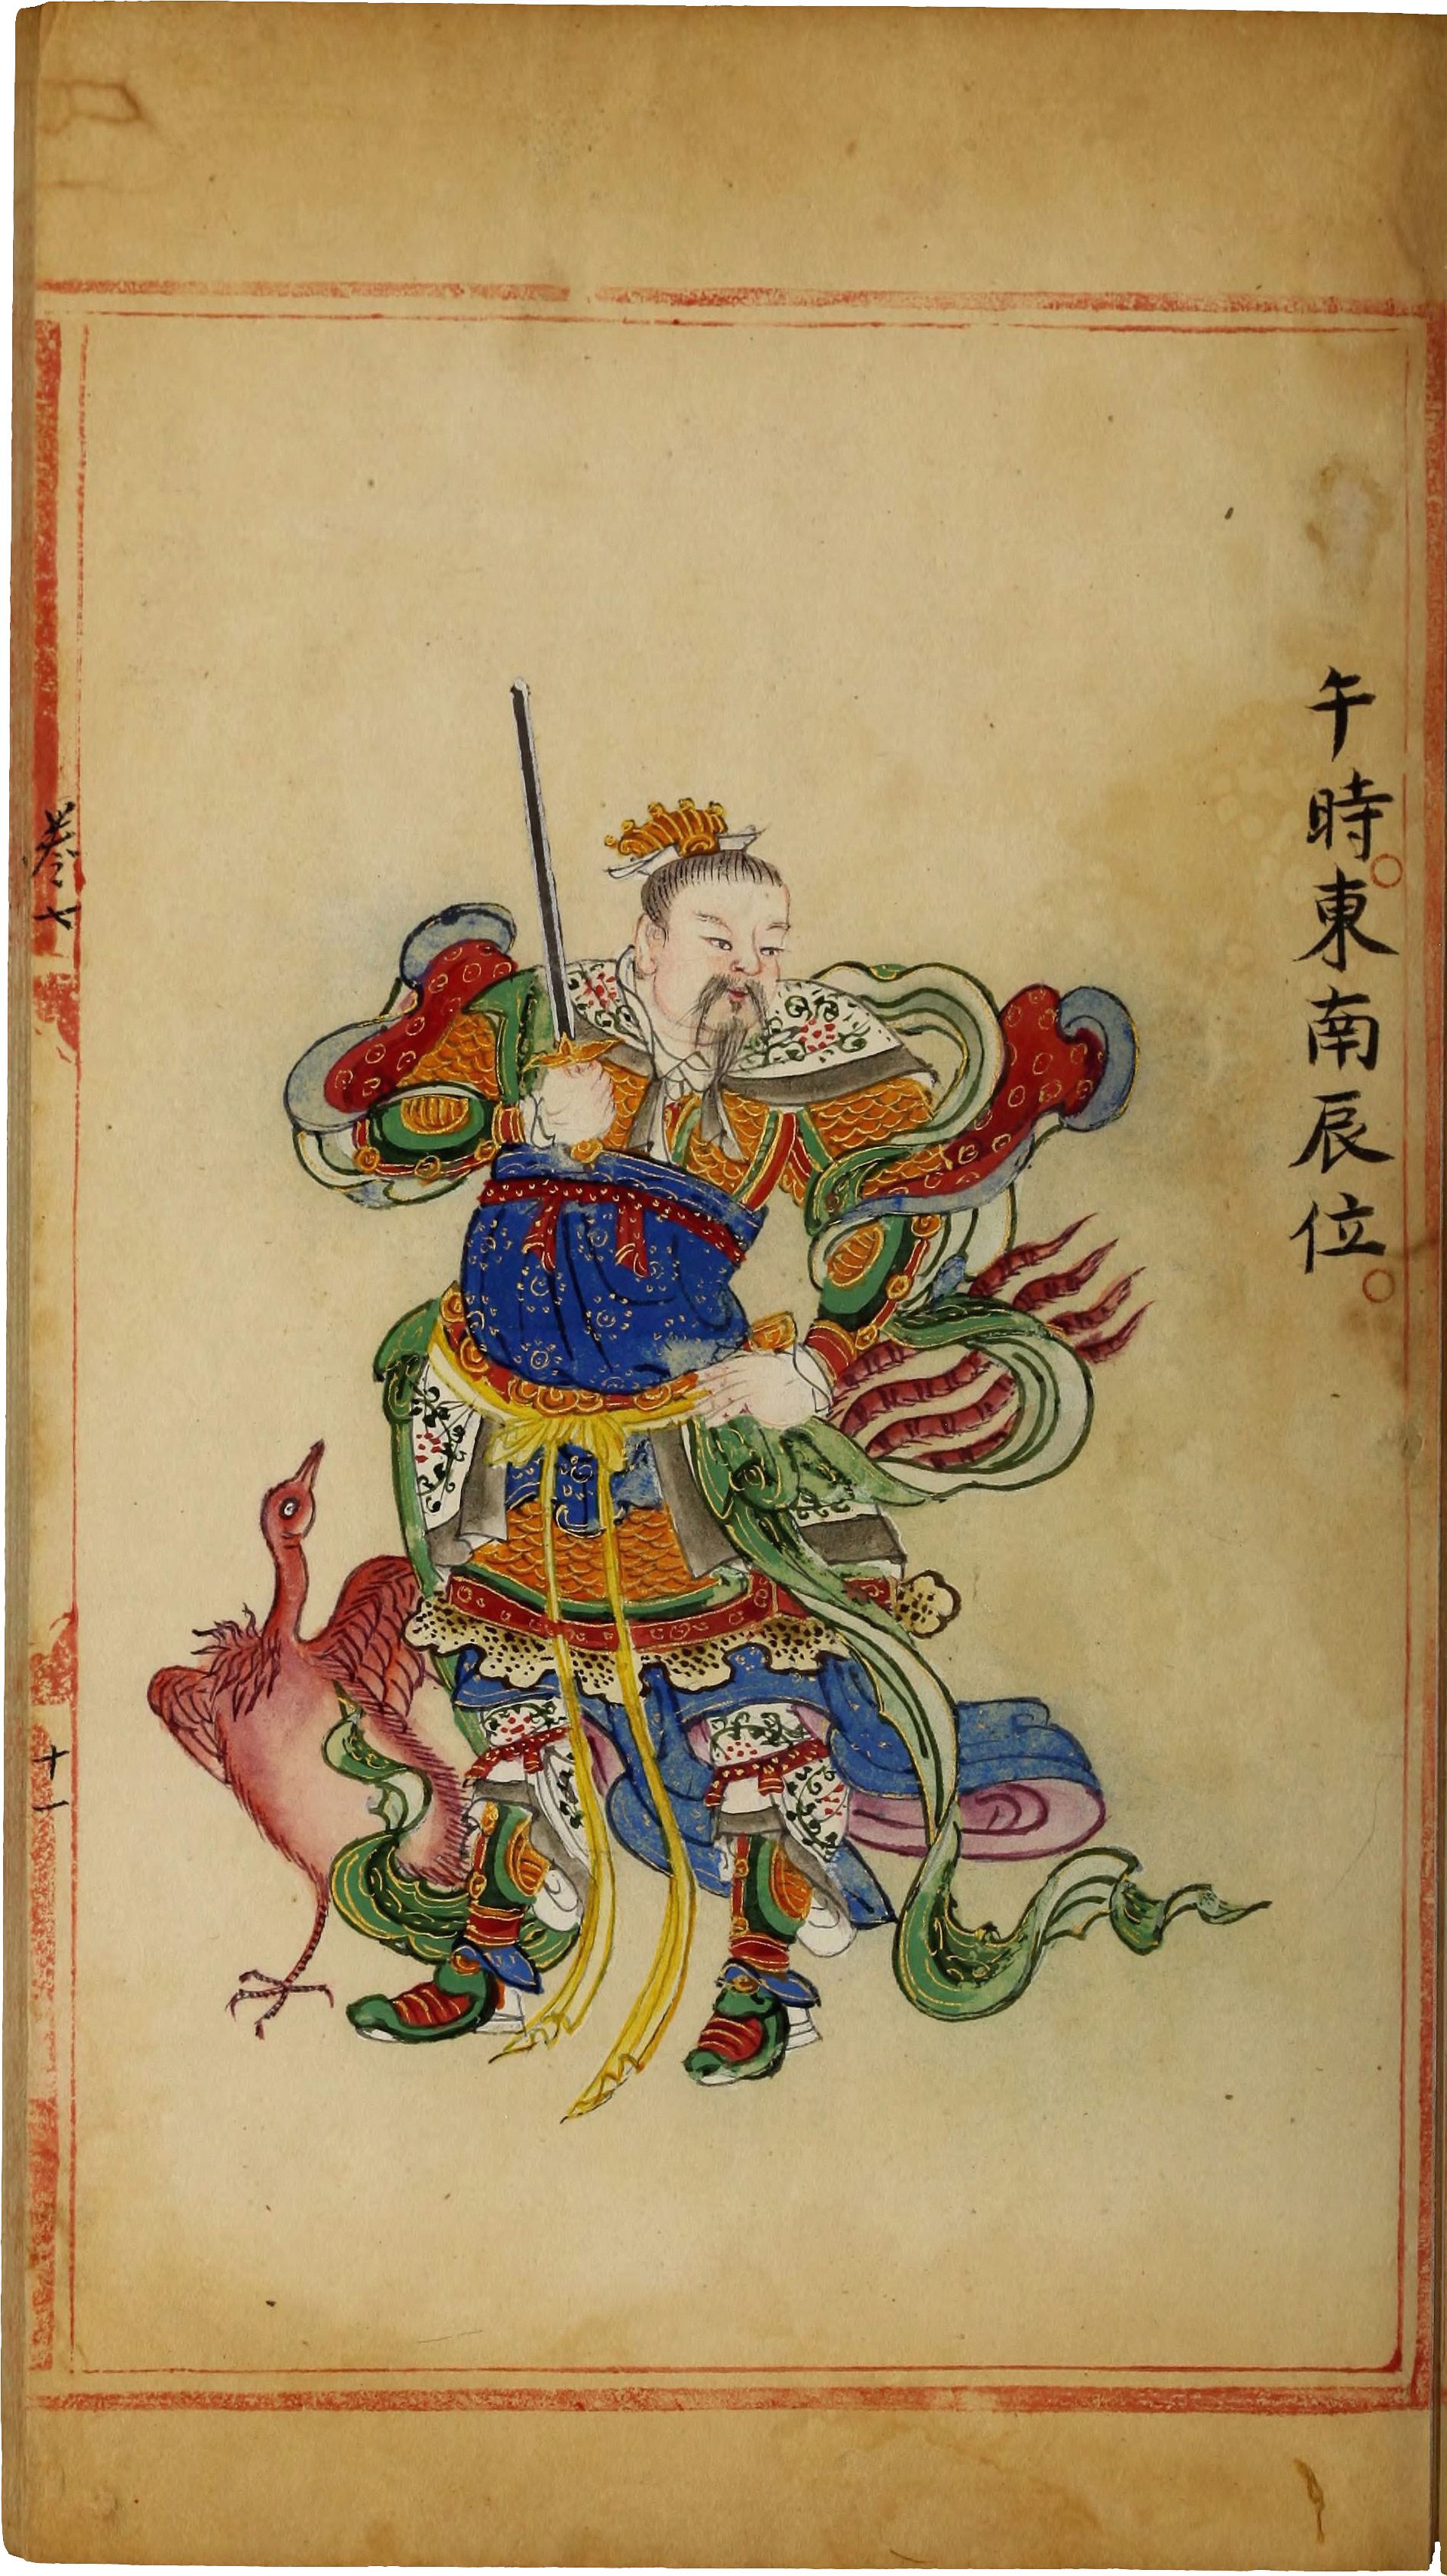 午時。東南辰位。
卷七
十一